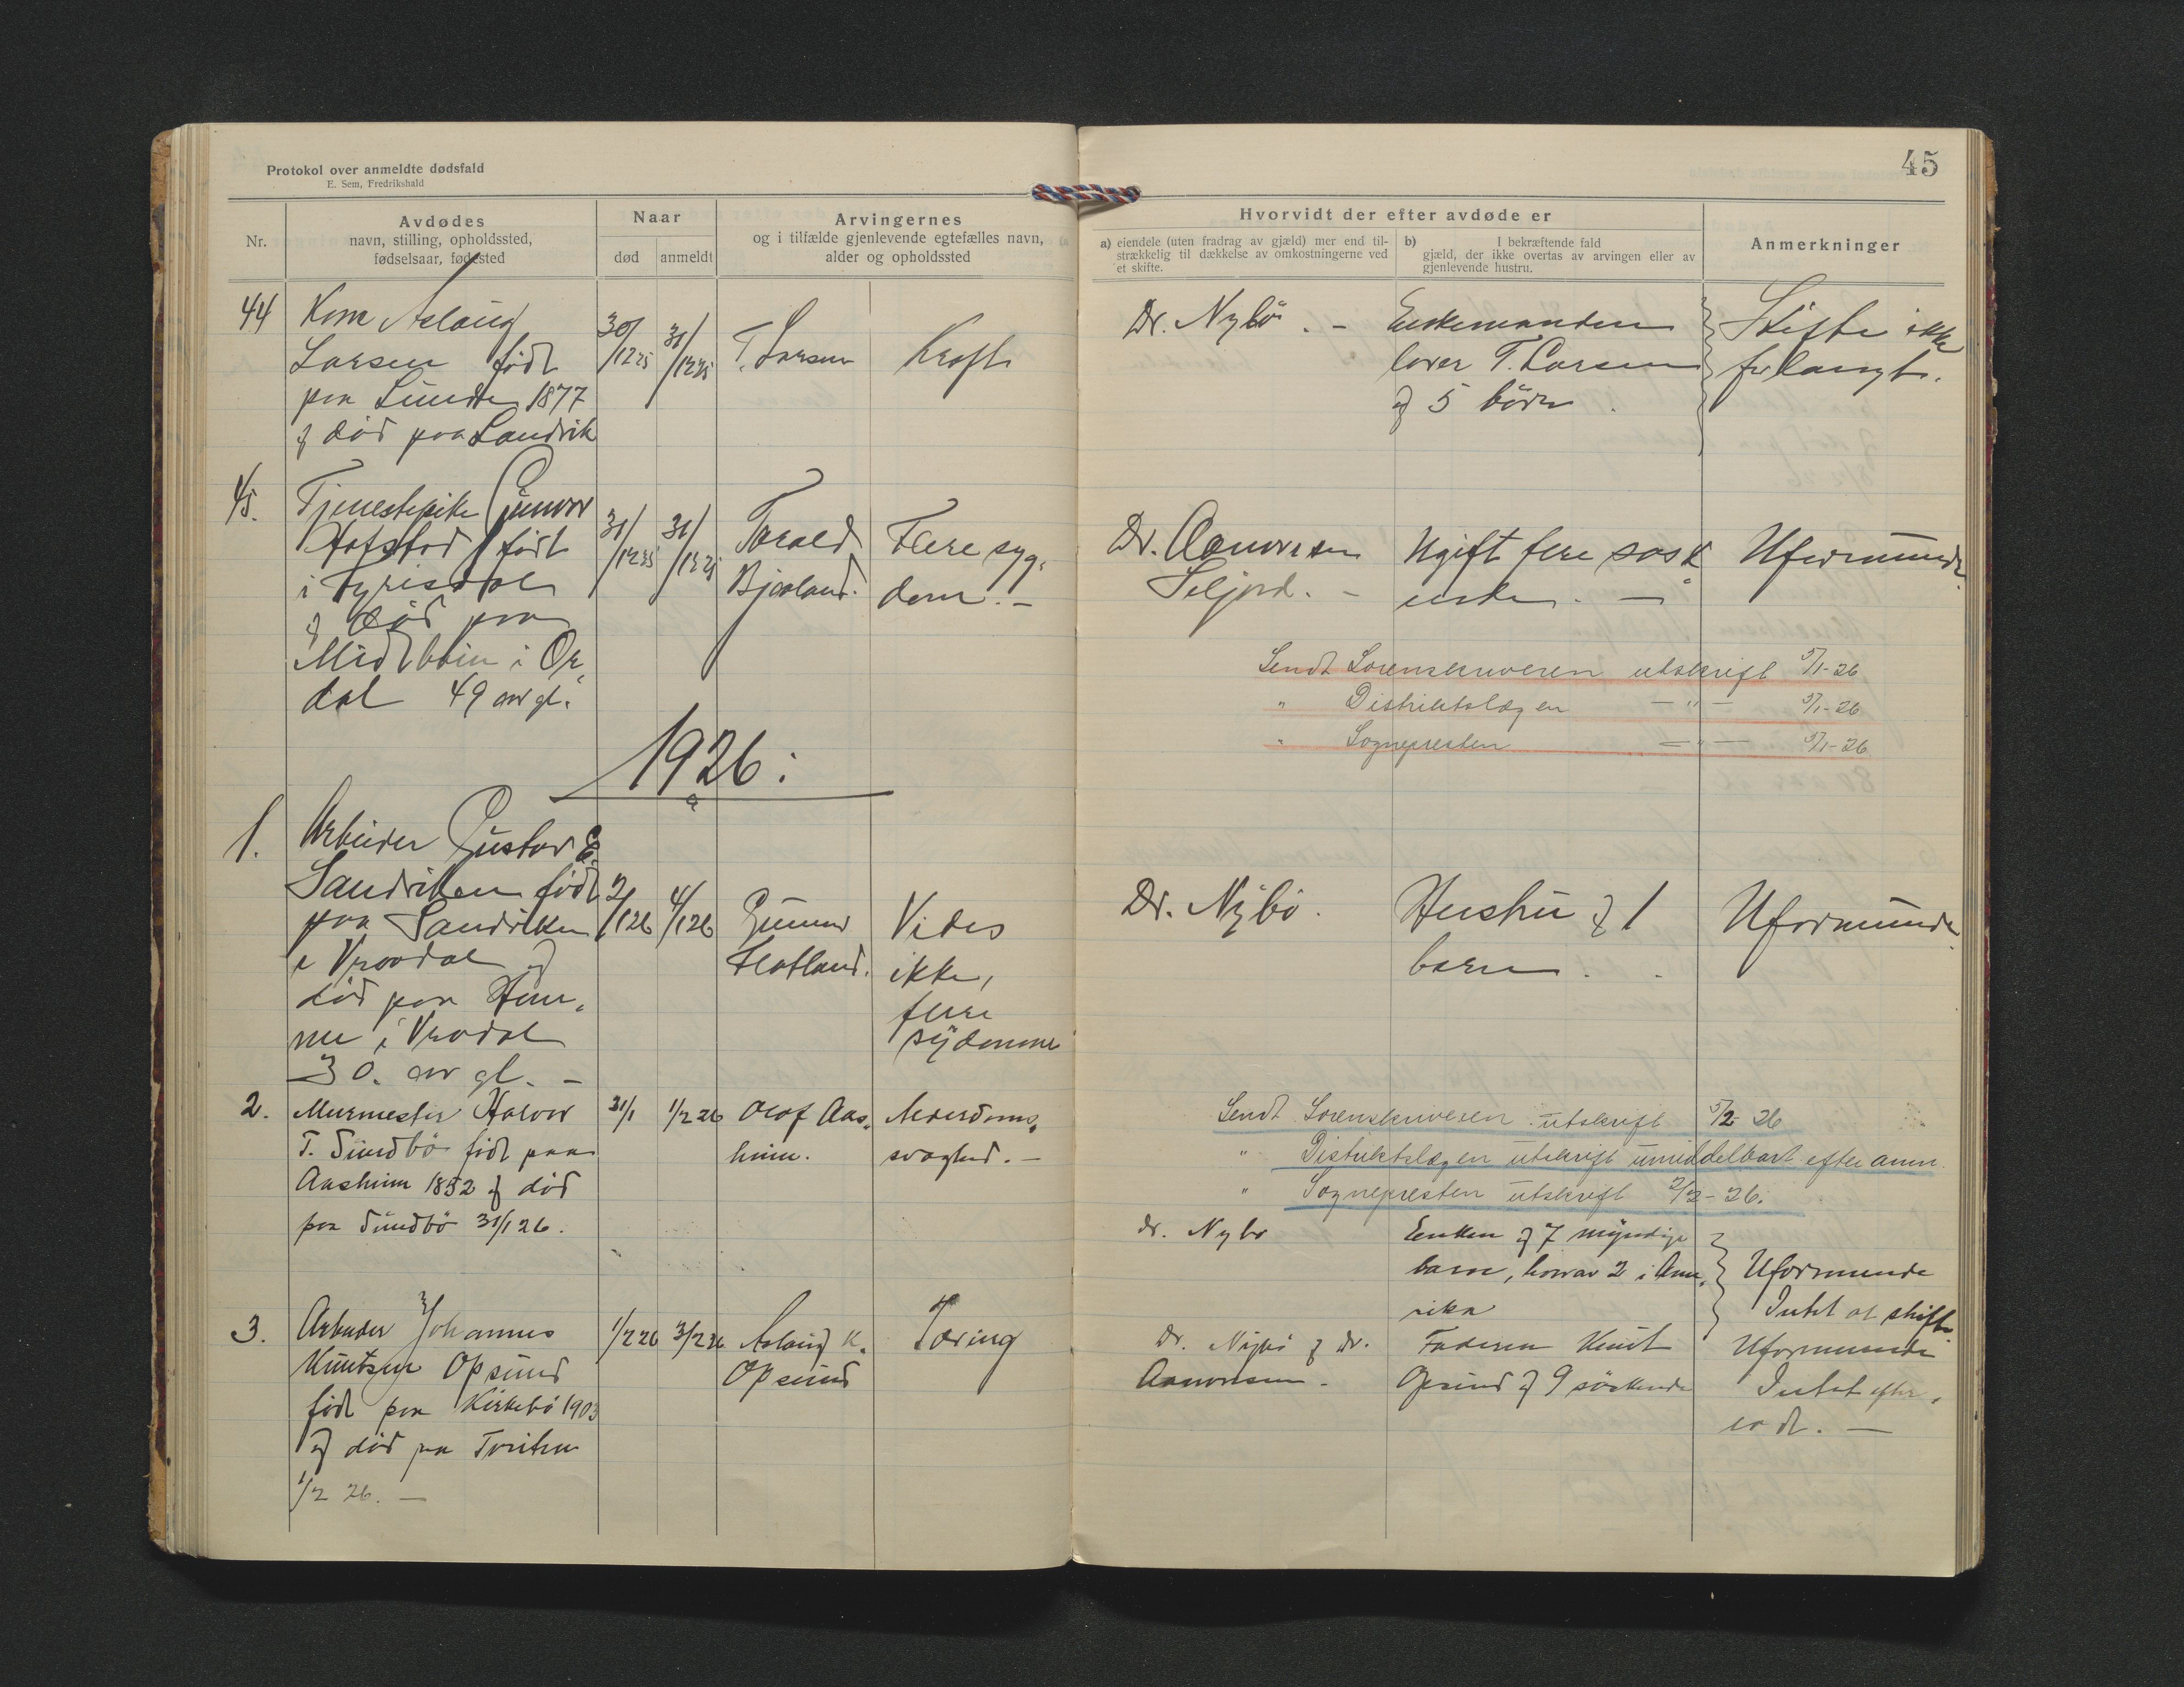 Protokol over anmeldte dødsfald
E. Sem, Fredrikshald
Nr.
Avdødes
navn, stilling, opholdssted,
fødselsaar, fødested
Naar
død
anmeldt
Arvingernes
og i tilfælde gjenlevende egtefælles navn,
alder og opholdssted
44
Kone Aslaug
Larsen født
paa Sundt 1877
og død paa Sandvik
30/12 25
31/12 25
T. Larsen
Kræft
45.
Tjenestepike Gunvor
Hofstad født
i Fyrisdal
og død paa
Midtbøin i Or,
dal 49 aar gl.
31/12 25
31/12 25
Torald
Bjaaland.
Flere syg,
dom. –
1926:
1.
Arbeider Gustav E.
Sandviken født
paa Sandviken
i Vraadal og
død paa Hem,
me i Vradal
30. aar gl. –
2/1 26
4/1 26
Gunnar
Flatland.
Vides
ikke,
flere
sydomme
2.
Murmester Halvor
T. Sundbö født paa
Aasheim 1852 og død
paa Sundbö 31/1 26.
31/1
1/2 26
Olof Aas,
heim.
Alderdoms,
svaghed. –
3.
Arbeider Johannes
Knutsen Opsund
født paa Kirkebö 1903
og død paa
1/2 26. –
1/2 26
3/2 26
Aslaug K.
Opsund
Tæring
45
Hvorvidt der efter avdøde er
a) eiendele (uten fradrag av gjæld) mer end til-
strækkelig til dækkelse av omkostningerne ved
et skifte.
b) I bekræftende fald
gjæld, der ikke overtas av arvingen eller av
gjenlevende hustru.
Anmerkninger
Dr. Nybö. –
Enkemanden
lærer T. Larsen
og 5 börn.
Skifte ikke
forlangt.
Dr. Aanonsen
Seljord. –
Ugift flere søsk
ende. –
Uformuende
Sendt Sorenskriveren utskrift 5/1-26
" Distriktslægen –"– 5/1-26
" Sognepresten –"– 5/1-26
1926:
Dr. Nybö.
Hustru og 1
barn.
Uformuende
Sendt Sorenskriveren utskrift 5/2 26
" Distriktslægen utskrift umiddelbart efter anm.
" Sognepresten utskrift 2/2-26.
dr. Nybö
Enken og 7 myndige
barn, hvorav 2 i Ame,
rika
Uformuende
Intet at skifte
Dr. Nybö og dr.
Aanonsen –
Faderen Knut
Opsund og 9 söskende
Uformuende
Intet efter,
ladt. –